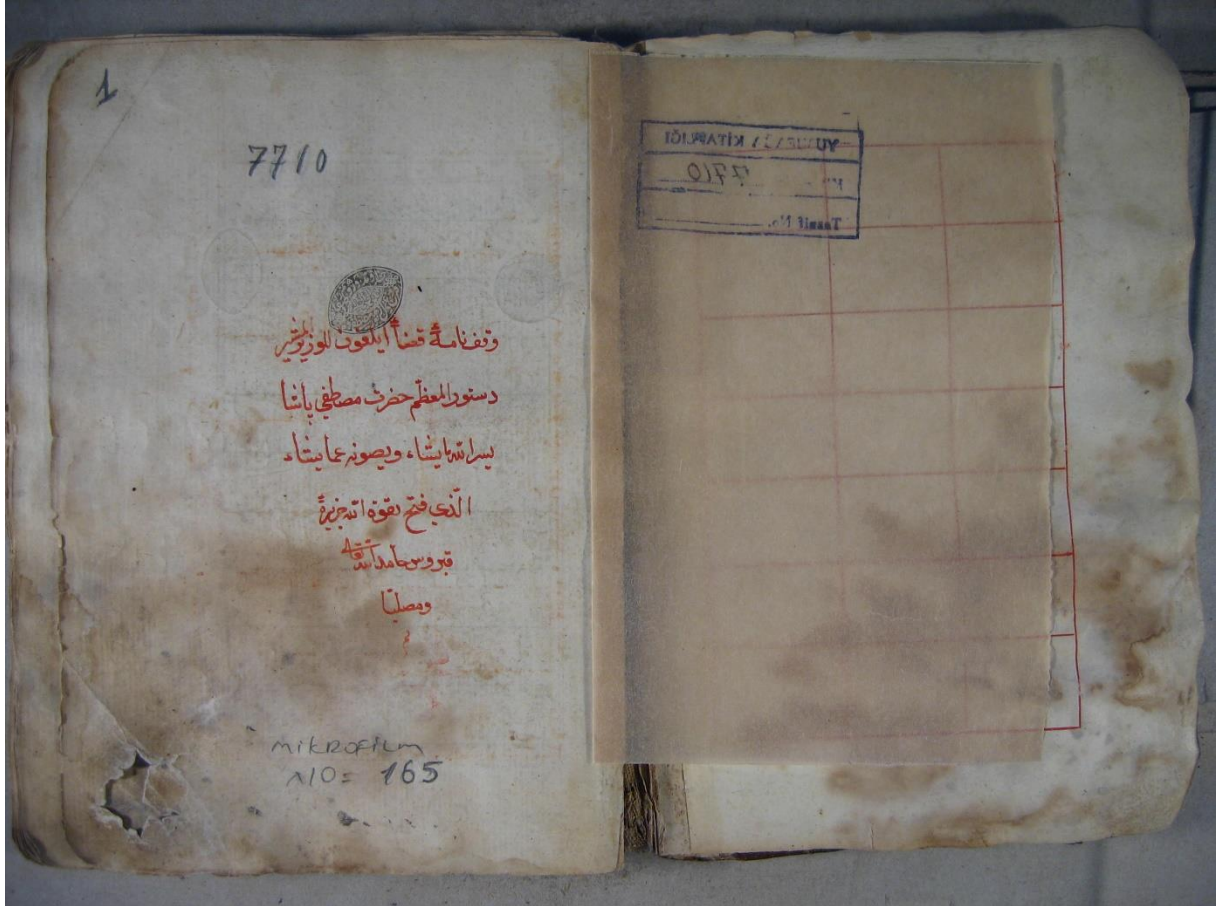 1
7710
وقفنامهٔ قضاٴ ایلغون للوزیر المشیر
دستور المعظّم حضرت مصطفی پاشا
یسر الله مایشاء ویصونه عما یشاء
الّذی فتح بقوة الله جزیرهٔ
قبروس حامدا لله تعالی
ومصلیّا
MİKROFİLM
NO= 165
KİTAPLIĞI
7710
Tasnif No.